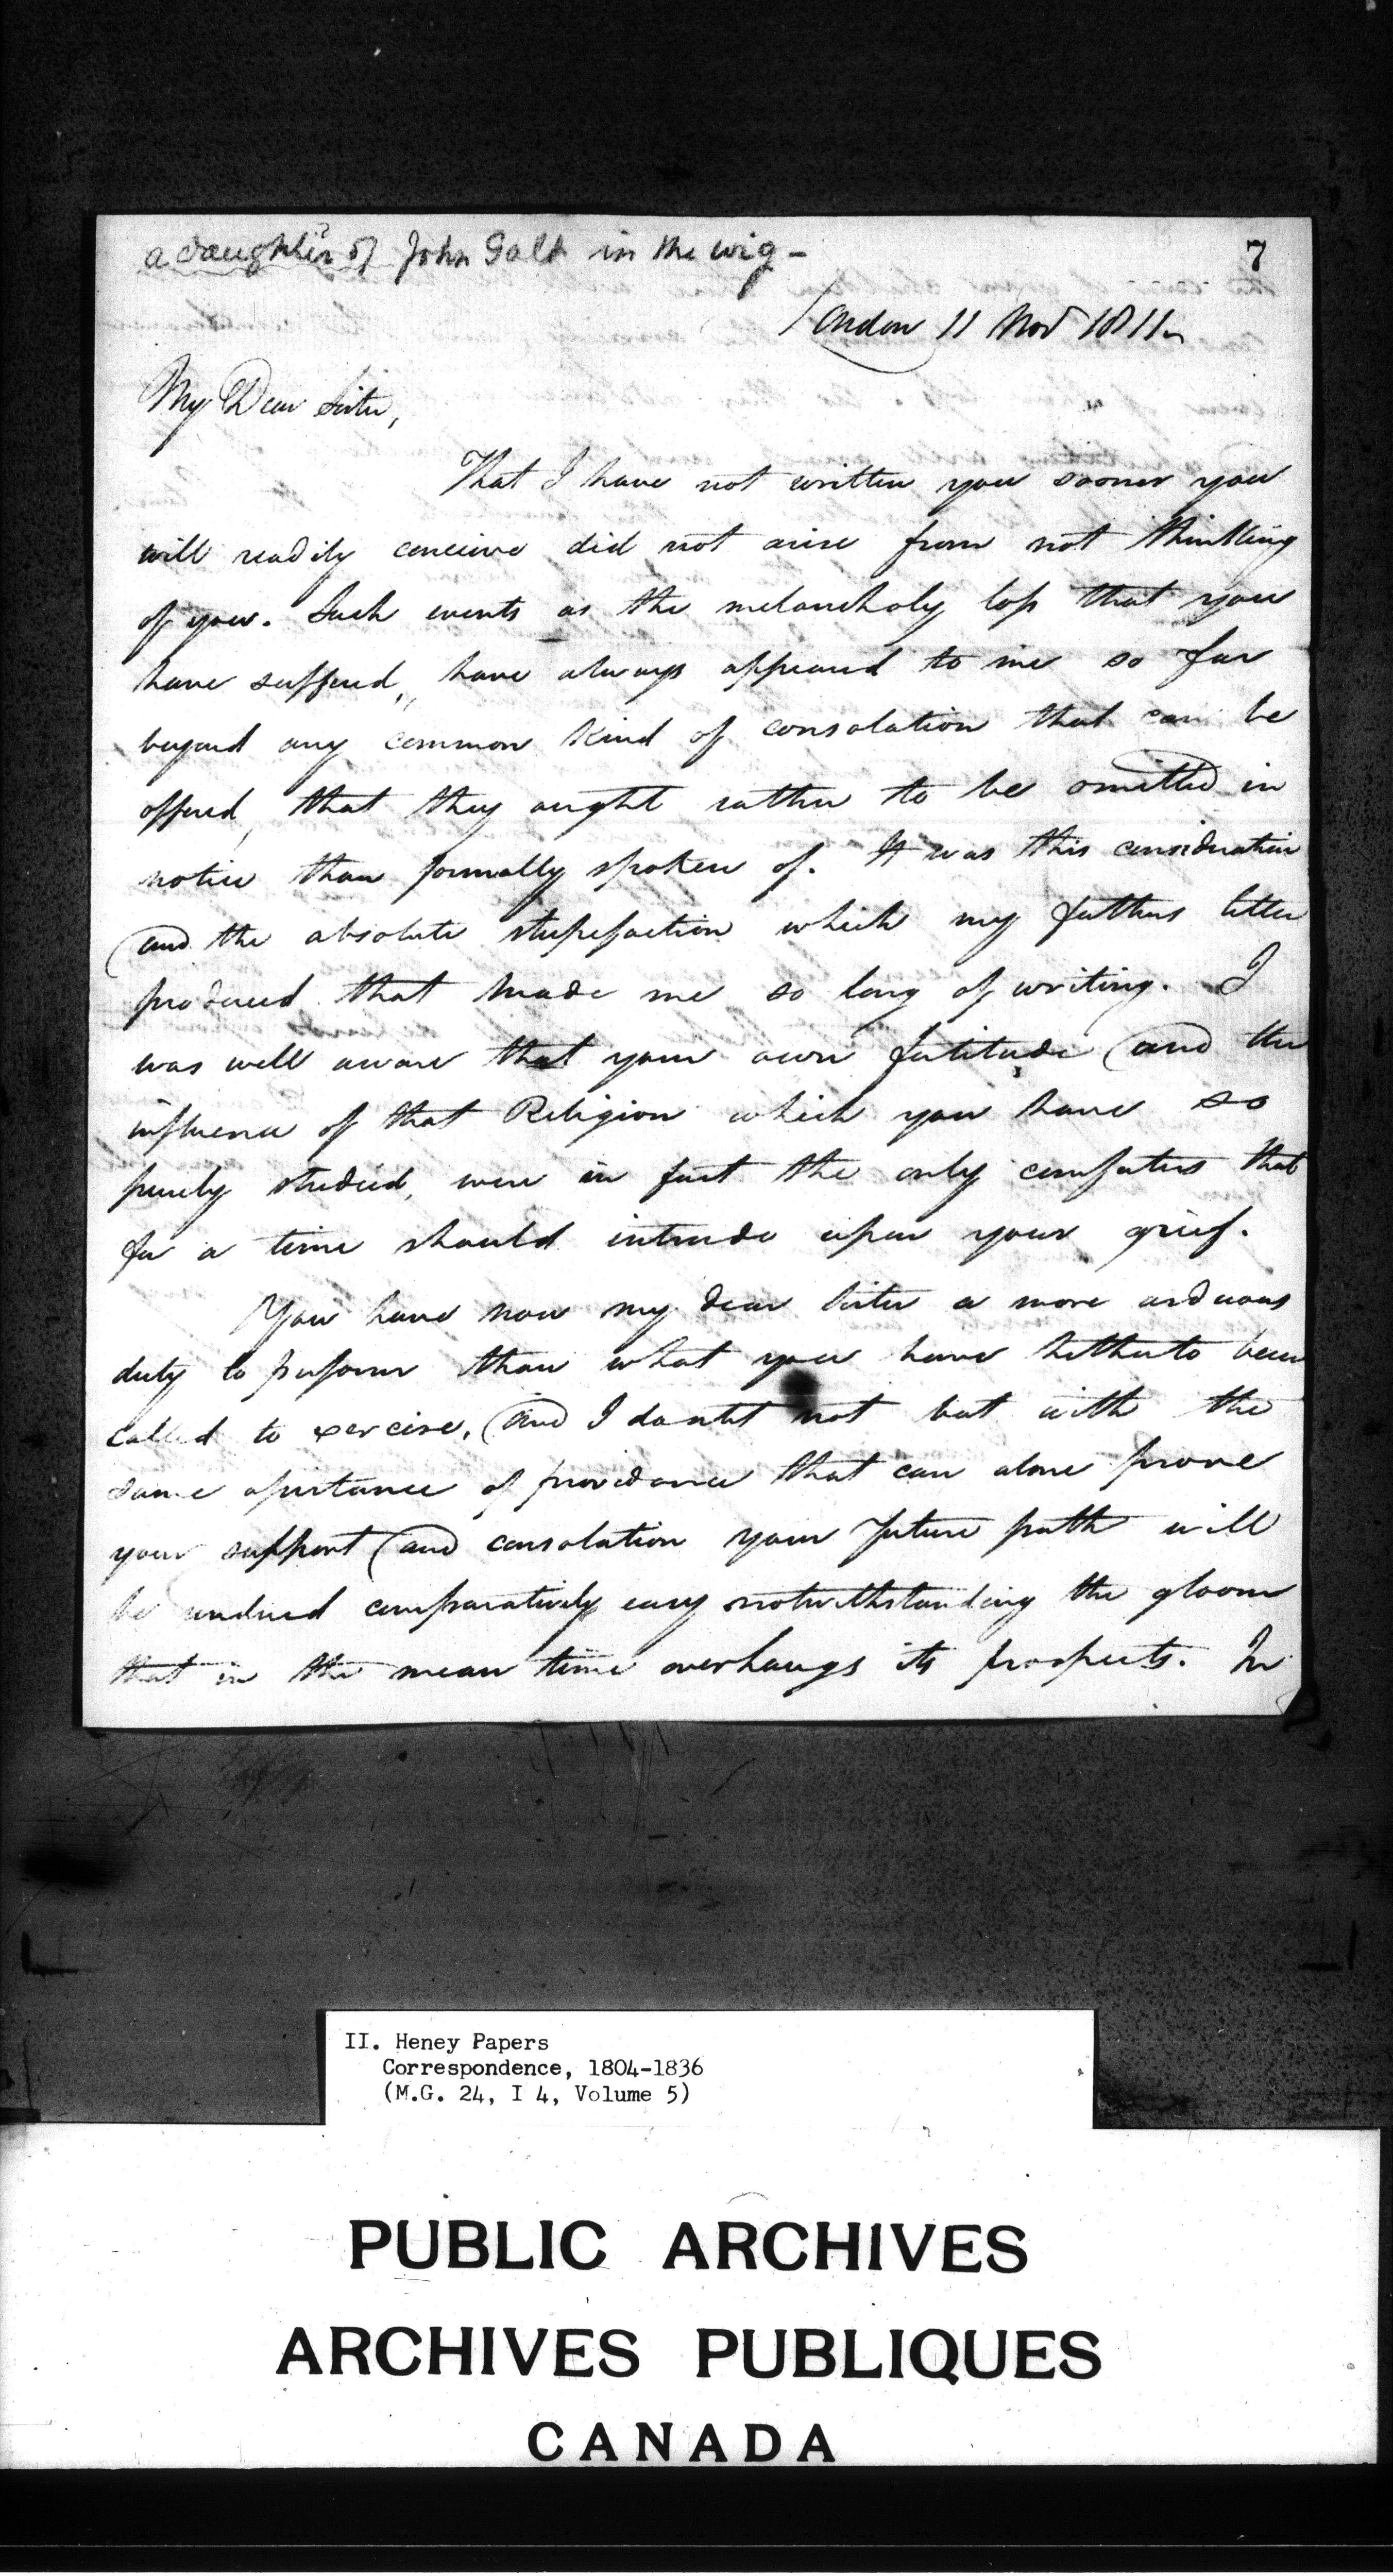 a daughter of John Galt in the wig -
7
London 11 Nov 1811
My Dear Sister,
That I have not written you sooner you
will readily conceive did not arise from not thinking
of you. Such events as the melancholy loss that you
have suffered, have always appeared to me so far
beyond any common kind of consolation that can be
offered, that they ought rather to be omitted in
notice than formally spoken of. It was this consideration
and the absolute stupefaction which my fathers letter
produced that made me so long of writing. I
was well aware that your own fortitude and the
influence of that Religion which you have so
purely studied, were in fact the only comforters that
for a time should intrude upon your grief.
You have now my dear Sister a more arduous
duty to perform than what you have hitherto been
called to exercise, and I doubt not but with the
same assistance of providence that can alone prove
your support and consolation your future path will
be rendered comparatively easy notwithstanding the gloom
that in the mean time overhangs its prospects. In
II. Heney Papers
Correspondence, 1804-1836
(M.G. 24, I 4, Volume 5)
PUBLIC ARCHIVES
ARCHIVES PUBLIQUES
CANADA